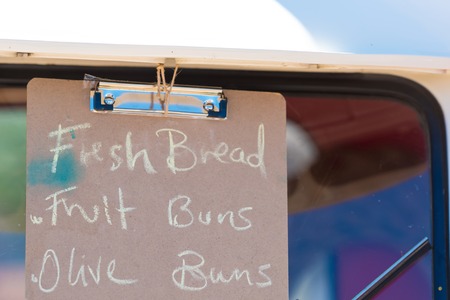 Fresh Bread
.Fruit Buns
.Olive Buns